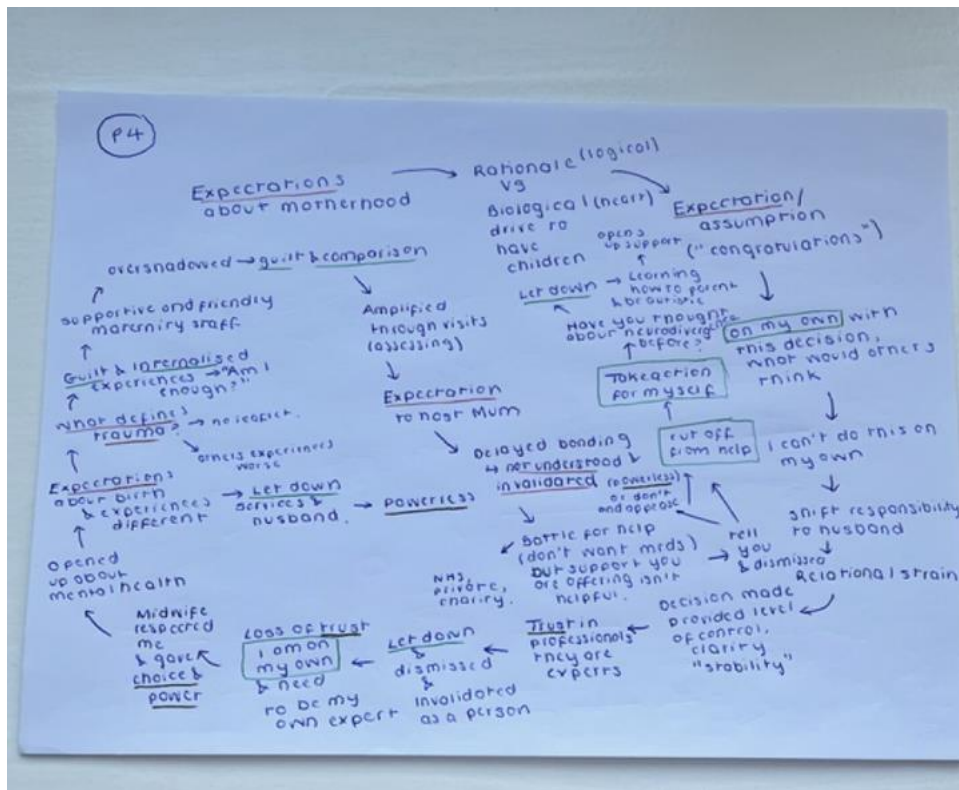 P4
Expectations
about motherhood
Rationale (logical)
vs
Biological (heart)
drive to
have
children
Expectation/
assumption
("congratulations")
on my own with
this decision,
what would others
think
I can't do this on
my own
shift responsibility
to husband
Relational strain
Decision made
provided level
of control,
clarity
"stability"
Trust in
professionals
they are
experts
Let down
&
dismissed
&
invalidated
as a person
Loss of trust
I am on
my own
& need
to be my
own expert
Midwife
respected
me
& gave
choice &
power
opened
up about
mental health
Expectations
about birth
& experiences
different
Let down
services &
husband.
Powerless
What defines
trauma?
others experiences
worse
Guilt & internalised
experiences
"Am I
enough?"
supportive and friendly
maternity staff
overshadowed
guilt & comparison
Amplified
through visits
(assessing)
Expectation
to host Mum
Delayed bonding
not understood &
invalidated
(powerless)
or don't
and appease
Battle for help
(don't want meds)
but support you
are offering isn't
helpful.
NHS,
private,
charity.
tell
you
& dismissed
cut off
from help
Take action
for myself
Have you thought
about neurodivergence
before?
Let down
Learning
how to parent
& be autistic
opens
up support